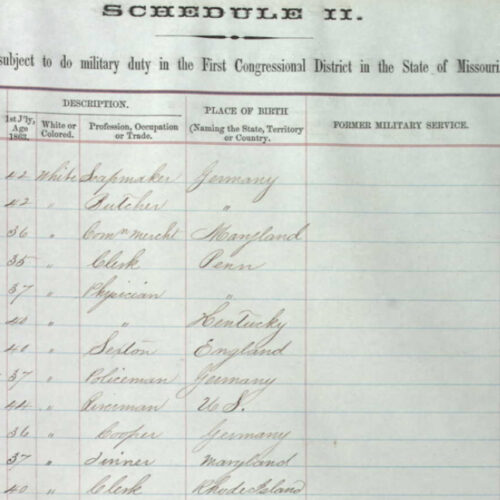 SCHEDULE II.
subject to do military duty in the First Congressional District in the State of Missouri
DESCRIPTION.
PLACE OF BIRTH
(Naming the State, Territory
or Country.
FORMER MILITARY SERVICE.
1st J'ly,
Age
1863.
White or
Colored.
Profession, Occupation
or Trade.
42 White Soapmaker Germany
42 " Butcher "
36 " Comn mercht Maryland
35 " Clerk Penn
37 " Physician "
40 " " Kentucky
40 " Sexton England
37 " Policeman Germany
44 " Riverman U S.
36 " Cooper Germany
37 " Tinner Maryland
40 " Clerk Rhode Island